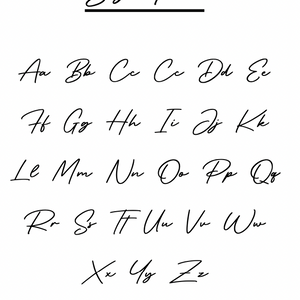 Aa Bb Cc Cc Dd Ee
Ff Gg Hh Ii Jj Kk
Ll Mm Nn Oo Pp Qq
Rr Ss Tt Uu Vv Ww
Xx Yy Zz